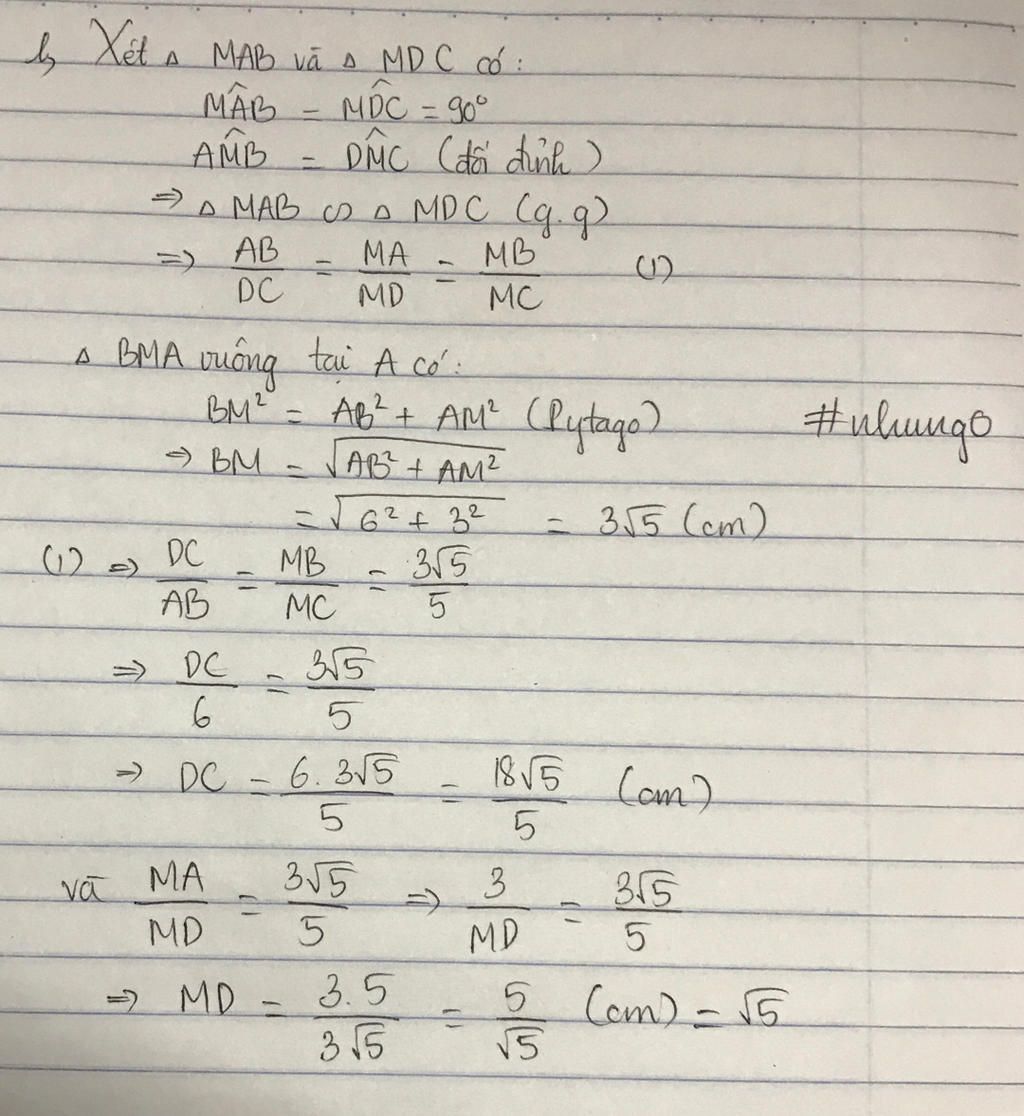 b, Xét Δ MAB và Δ MDC có:
M̂AB = M̂DC = 90°
AM̂B = DM̂C (đối đỉnh)
⇒ Δ MAB ∽ Δ MDC (g.g)
⇒ AB/DC = MA/MD = MB/MC (1)
Δ BMA vuông tại A có:
BM² = AB² + AM² (Pytago) #nhung8
⇒ BM = √(AB² + AM²)
= √(6² + 3²) = 3√5 (cm)
(1) ⇒ DC/AB = MB/MC = 3√5/5
⇒ DC/6 = 3√5/5
⇒ DC = 6.3√5/5 = 18√5/5 (cm)
và MA/MD = 3√5/5 ⇒ 3/MD = 3√5/5
⇒ MD = 3.5/3√5 = 5/√5 (cm) = √5